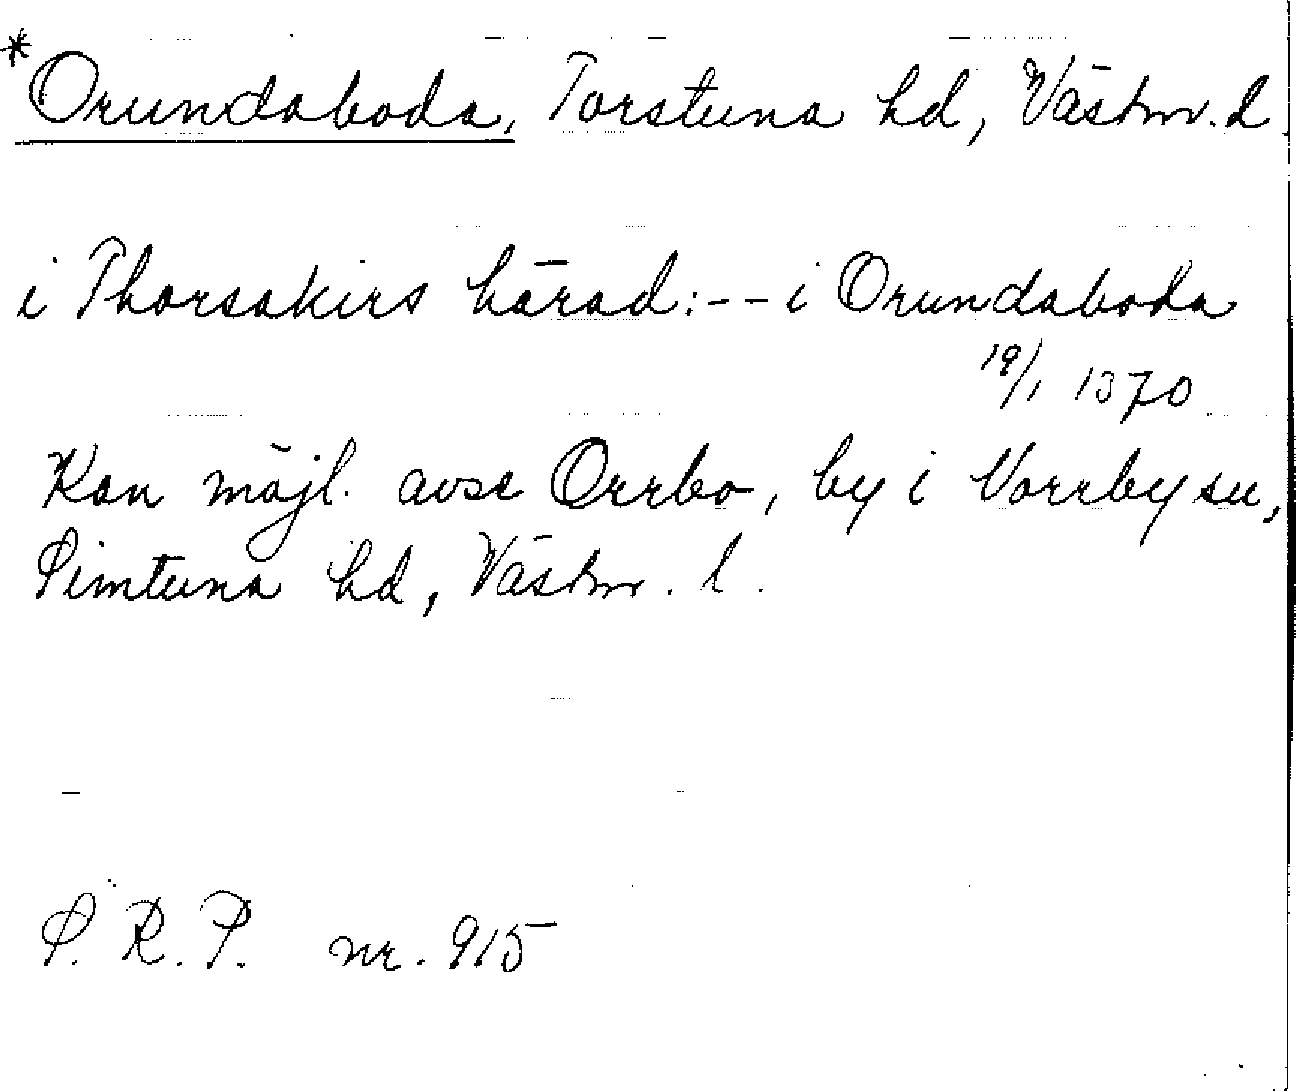 *Orundaboda, Torstuna hd, Västm. l
i Thorsakirs härad:-- i Orundaboda
19/1 1370
Kan möjl. avse Orrbo, by i Vorrby su,
Simtuna hd, Västm. l.
S. R. P. nr. 915